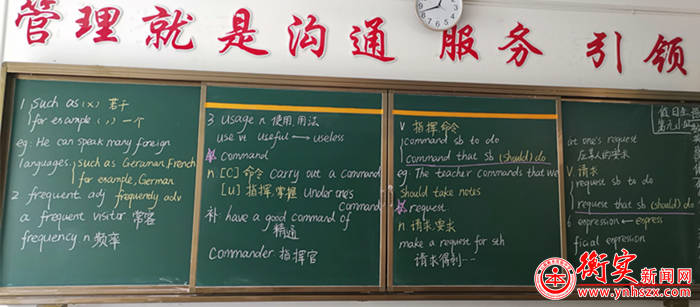 管理就是沟通 服务 引领
1 such as (x) 若干
for example (,) 一个
eg: He can speak many foreign
languages, such as Geraman, French
for example, German
2 frequent adj frequently adv
a frequent visitor 常客
frequency n 频率
3 usage n 使用,用法
use vt useful → useless
command
n [C] 命令 carry out a command
[U] 指挥,掌握 under one's
command
补 have a good command of
精通
Commander 指挥官
v 指挥 命令
command sb to do
command that sb (should) do
eg: The teacher commands that we
should take notes
request
n. 请求,要求
make a request for sth
请求得到…
at one's request
应某人的要求
v. 请求
request sb to do
request that sb (should) do
6 expression ← express
ficial expression
衡实新闻网
www.ynhszx.com